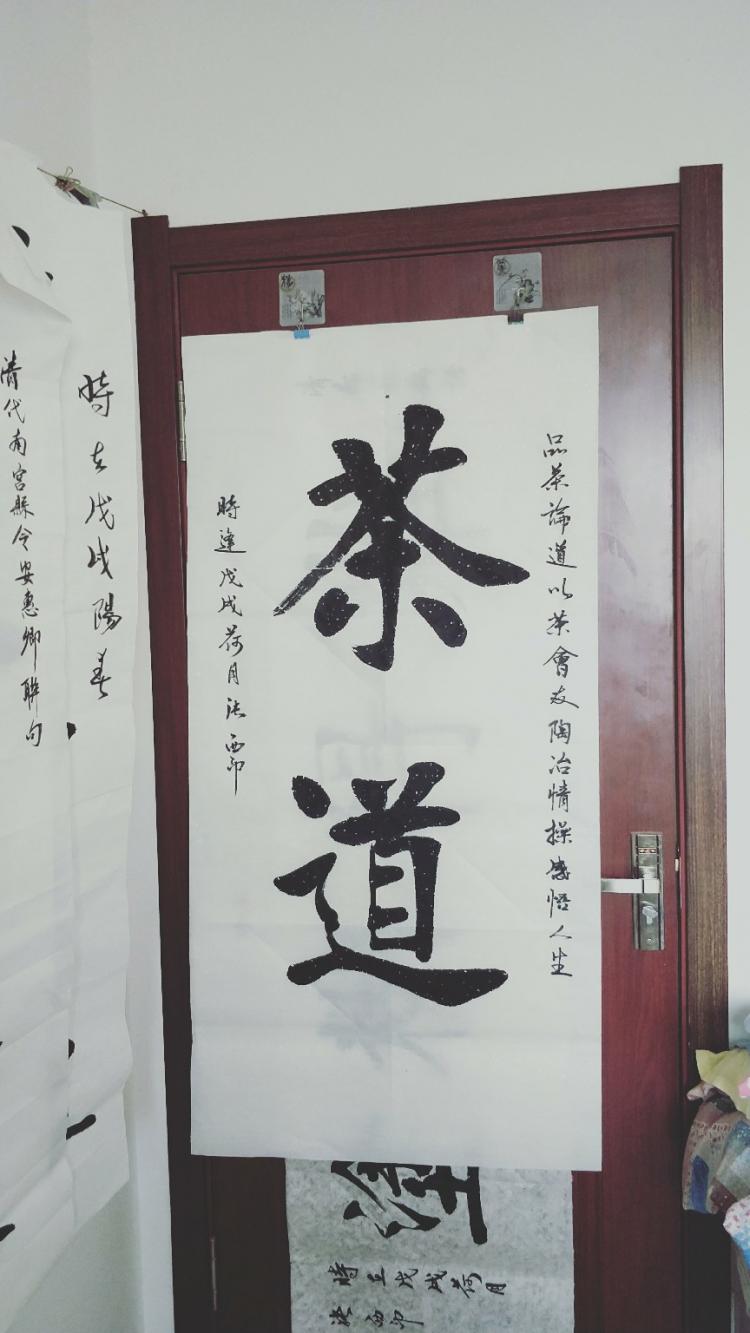 茶道
品茶論道以茶會友陶冶情操感悟人生
時逢戊戌荷月張西印
時在戊戌陽春
清代南宮縣令安惠卿聯句
時在戊戌荷月
張西印